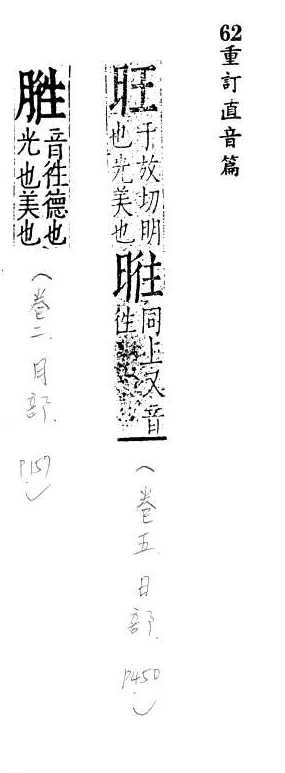 62重訂直音篇
旺于放切明也光美也暀同上又音徃
(卷五、日部、P450)
音徃德也光也美也
(卷二、月部、P157)